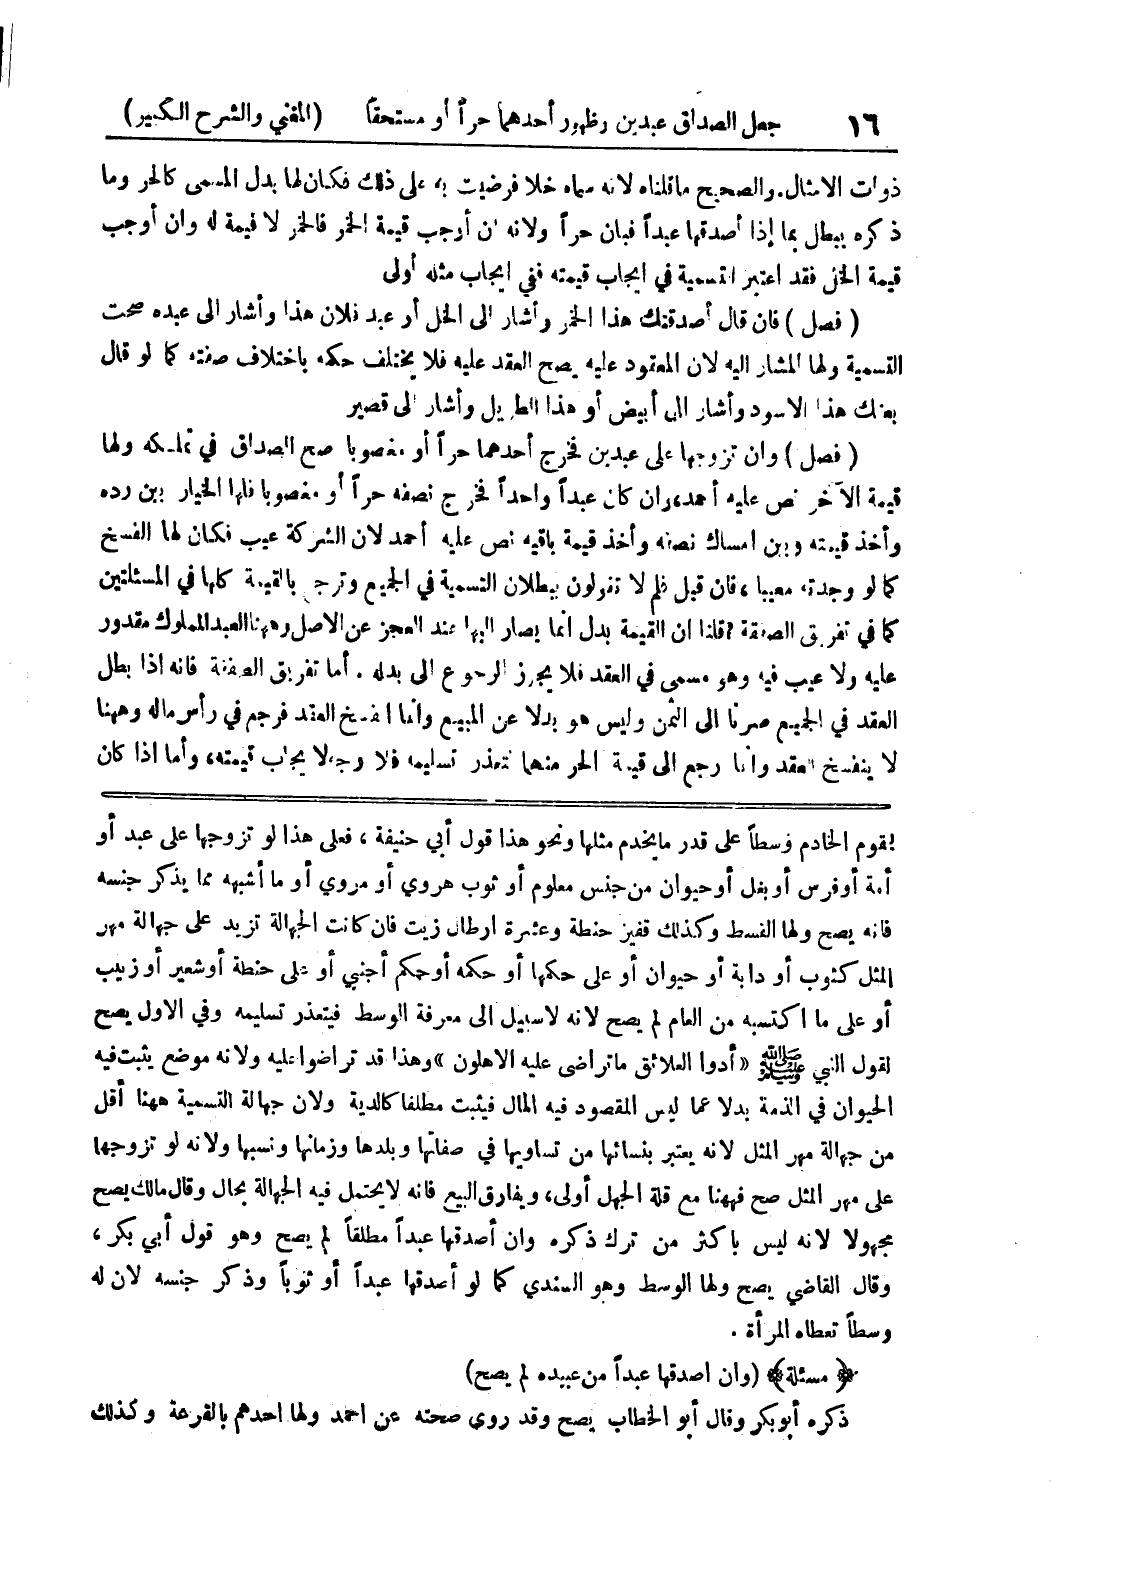 ١٦ جعل الصداق عبدين وظهور أحدهما حراً أو مستحقاً (المغني والشرح الكبير)
ذوات الامثال. والصحيح ماقلناه لانه سماه خلا فرضيت به على ذلك فكان لها بدل المسمى كالحر وما
ذكره يبطل بما إذا أصدقها عبداً فبان حراً ولانه ان أوجب قيمة الخمر فالخمر لا قيمة له وان أوجب
قيمة الخل فقد اعتبر التسمية في ايجاب قيمته ففي ايجاب مثله أولى
( فصل ) فان قال أصدقتك هذا الخمر وأشار الى الخل أو عبد فلان هذا وأشار الى عبده صحت
التسمية ولها المشار اليه لان المعقود عليه يصح العقد عليه فلا يختلف حكمه باختلاف صفته كما لو قال
بعتك هذا الاسود وأشار الى أبيض أو هذا الطويل وأشار الى قصير
( فصل ) وان تزوجها على عبدين فخرج أحدهما حراً أو مغصوبا صح الصداق في تملكه ولها
قيمة الآخر نص عليه أحمد، وان كان عبداً واحداً فخرج نصفه حراً أو مغصوبا فلها الخيار بين رده
وأخذ قيمته وبين امساك نصفه وأخذ قيمة باقيه نص عليه أحمد لان الشركة عيب فكان لها الفسخ
كما لو وجدته معيبا ، فان قيل فلم لا تقولون ببطلان التسمية في الجميع وترجع بالقيمة كلها في المسئلتين
كما في تفريق الصفقة ؟ قلنا ان القيمة بدل انما يصار اليها عند العجز عن الاصل وههنا العبد المملوك مقدور
عليه ولا عيب فيه وهو مسمى في العقد فلا يجوز الرجوع الى بدله . أما تفريق الصفقة فانه اذا بطل
العقد في الجميع صرنا الى الثمن وليس هو بدلا عن المبيع وانما انفسخ العقد فرجع في رأس ماله وههنا
لا ينفسخ العقد وانما رجع الى قيمة الحر منهما لتعذر تسليمه فلا وجه لايجاب قيمته، وأما اذا كان
يقوم الخادم وسطاً على قدر مايخدم مثلها ونحو هذا قول أبي حنيفة ، فعلى هذا لو تزوجها على عبد أو
أمة أو فرس أو بغل أو حيوان من جنس معلوم أو ثوب هروي أو مروي أو ما أشبهه مما يذكر جنسه
فانه يصح ولها القسط وكذلك قفيز حنطة وعشرة ارطال زيت فان كانت الجهالة تزيد على جهالة مهر
المثل كثوب أو دابة أو حيوان أو على حكمها أو حكمه أو حكم أجنبي أو على حنطة أو شعير أو زبيب
أو على ما اكتسبه من العام لم يصح لانه لاسبيل الى معرفة الوسط فيتعذر تسليمه وفي الاول يصح
لقول النبي ﷺ «أدوا العلائق ماتراضى عليه الاهلون» وهذا قد تراضوا عليه ولانه موضع يثبت فيه
الحيوان في الذمة بدلا عما ليس المقصود فيه المال فيثبت مطلقا كالدية ولان جهالة التسمية ههنا أقل
من جهالة مهر المثل لانه يعتبر بنسائها من تساويها في صفاتها وبلدها وزمانها ونسبها ولانه لو تزوجها
على مهر المثل صح فههنا مع قلة الجهل أولى، ويفارق البيع فانه لايحتمل فيه الجهالة بحال وقال مالك يصح
مجهولا لانه ليس باكثر من ترك ذكره وان أصدقها عبداً مطلقاً لم يصح وهو قول أبي بكر ،
وقال القاضي يصح ولها الوسط وهو السندي كما لو أصدقها عبداً أو ثوباً وذكر جنسه لان له
وسطاً تعطاه المرأة .
﴿ مسئلة ﴾ (وان اصدقها عبداً من عبيده لم يصح)
ذكره أبو بكر وقال أبو الخطاب يصح وقد روي صحته عن احمد ولها احدهم بالقرعة وكذلك